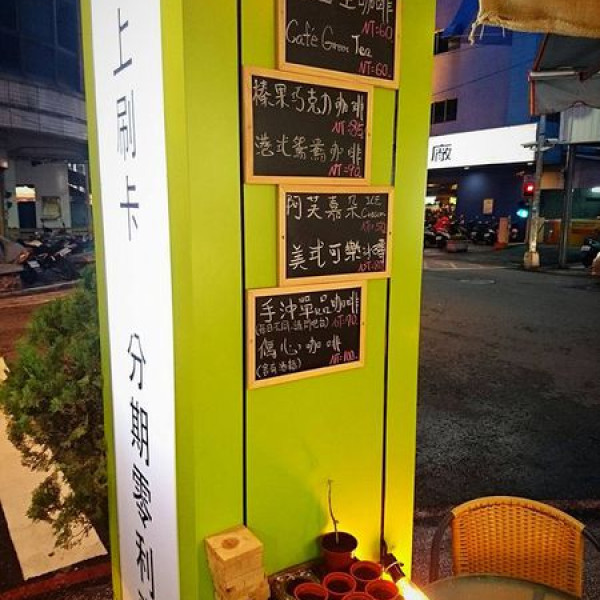 上刷卡 分期零利
咖啡
NT=60
Café Green Tea
NT=60.
榛果巧克力咖啡
NT=85
港式鴛鴦咖啡
NT=90.
阿芙嘉朵 ICE Cream
美式可樂冰
手沖單品咖啡
(每日不同,請問吧台) NT=90.
傷心咖啡
(含有酒精) NT=100.
廠